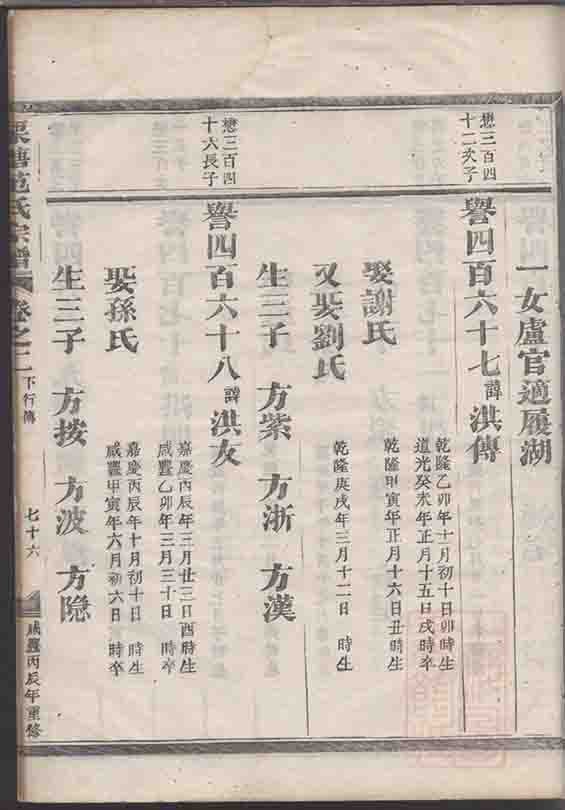 一女盧官適履湖
懋三百四
十二次子
譽四百六十七諱洪傳
乾隆乙卯年十月初十日卯時生
道光癸未年正月十五日戌時卒
娶謝氏
乾隆甲寅年正月十六日丑時生
又娶劉氏
乾隆庚戌年三月十二日 時生
生三子 方紫 方浙 方漢
懋三百四
十六長子
譽四百六十八諱洪友
嘉慶丙辰年三月廿三日酉時生
咸豐乙卯年三月三十日 時卒
娶孫氏
嘉慶丙辰年十月初十日 時生
咸豐甲寅年六月初六日 時卒
生三子 方按 方波 方隐
范氏宗譜 卷之二 下行傳 七十六 咸豐丙辰年重修